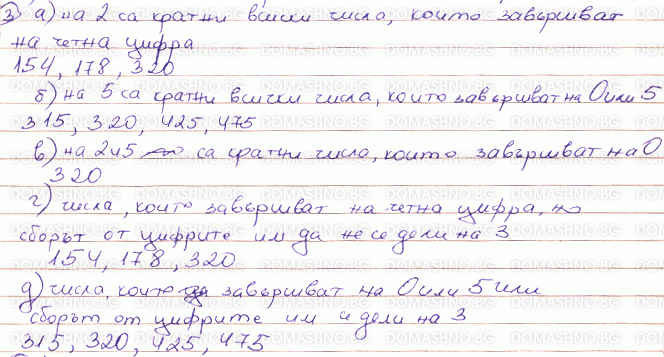 3 а) на 2 са кратни всички числа, които завършват
на четна цифра
154, 178, 320
б) на 5 са кратни всички числа, които завършват на 0 или 5
315, 320, 425, 475
в) на 2 и 5 са кратни числа, които завършват на 0
320
г) числа, които завършват на четна цифра, но
сборът от цифрите им да не се дели на 3
154, 178, 320
д) числа, които завършват на 0 или 5 или
сборът от цифрите им се дели на 3
315, 320, 425, 475